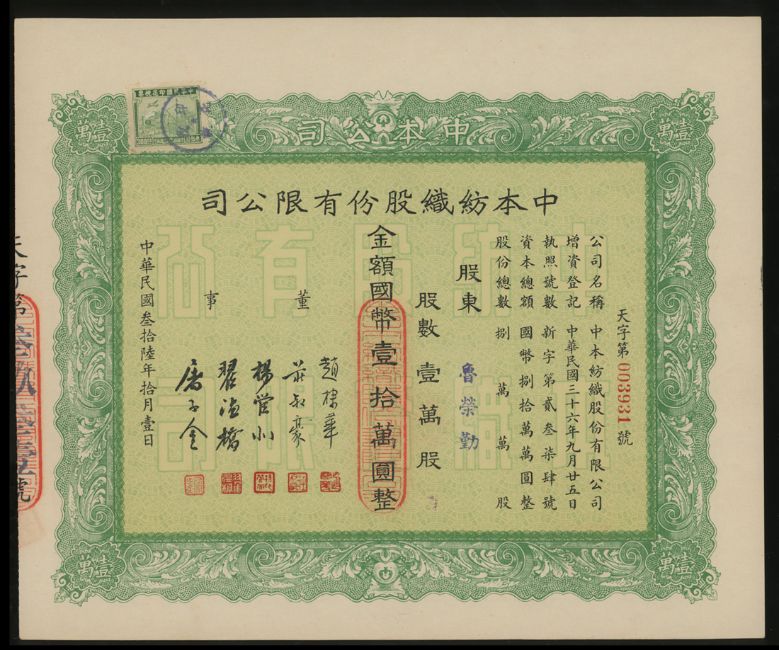 中本公司
壹萬
壹萬
中本紡織股份有限公司
天字第003931號
公司名稱 中本紡織股份有限公司
增資登記 中華民國三十六年九月廿五日
執照號數 新字第貳叁柒肆號
資本總額 國幣捌拾萬萬圓整
股份總數 捌萬萬股
股東 魯榮勤
股數 壹萬股
金額國幣壹拾萬圓整
董事
趙棣華
莊叔豪
中華民國叁拾陸年拾月壹日
天字第
號
壹萬
壹萬